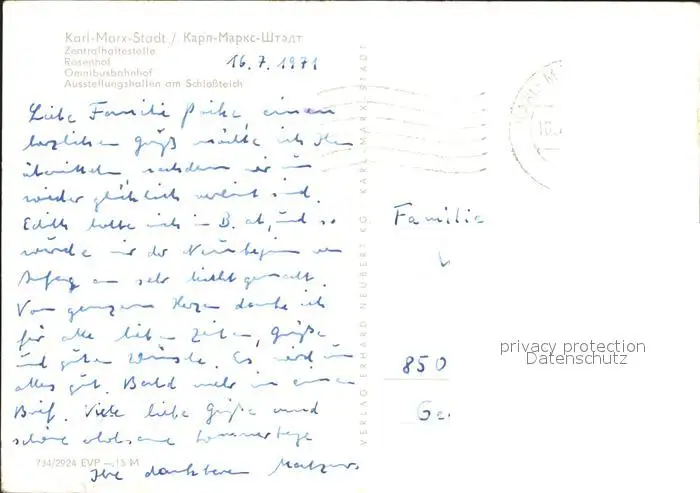 Karl-Marx-Stadt / Карл-Маркс-Штадт
Zentralhaltestelle
Rosenhof
Omnibusbahnhof
Ausstellungshallen am Schloßteich
16.7.1971
Liebe Familie einen
herzlichen Gruß möchte ich Ihnen
übermitteln, nachdem wir nun
wieder glücklich vereint sind.
Edith holte mich in B. ab, und so
wurde mir der Neubeginn von
Anfang an sehr leicht gemacht.
Von ganzem Herzen danke ich
für alle lieben Zeilen, Grüße
und guten Wünsche. Es wird nun
alles gut. Bald mehr in einem
Brief. Viele liebe Grüße und
schöne erholsame Sommertage
Ihre dankbaren
734/2924 EVP -,15 M
VERLAG ERHARD NEUBERT KG, KARL-MARX-STADT
Familie
850
privacy protection
Datenschutz